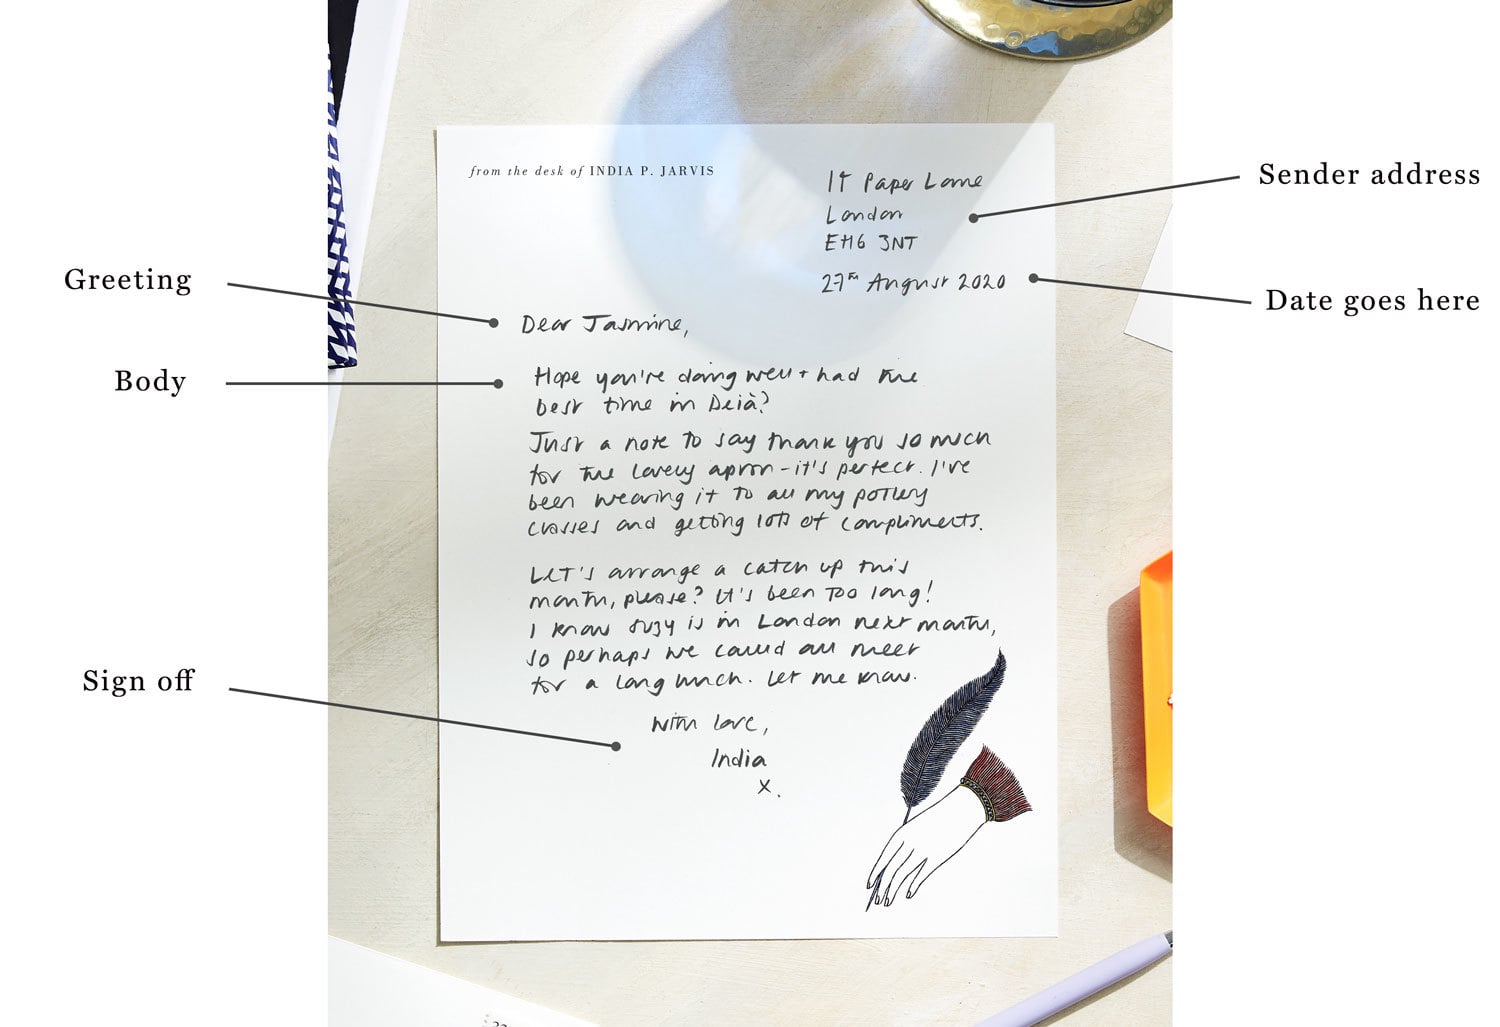 from the desk of INDIA P. JARVIS
Paper Lane
London
EH6 3NT
27th August 2020
Sender address
Date goes here
Greeting
Dear Jasmine,
Body
Hope you're doing well + had the
best time in Deià?
Just a note to say thank you so much
for the lovely apron - it's perfect. I've
been wearing it to all my pottery
classes and getting lots of compliments.
Let's arrange a catch up this
month, please? It's been too long!
I know Suzy is in London next month,
so perhaps we could all meet
for a long lunch. Let me know.
Sign off
With love,
India
x.